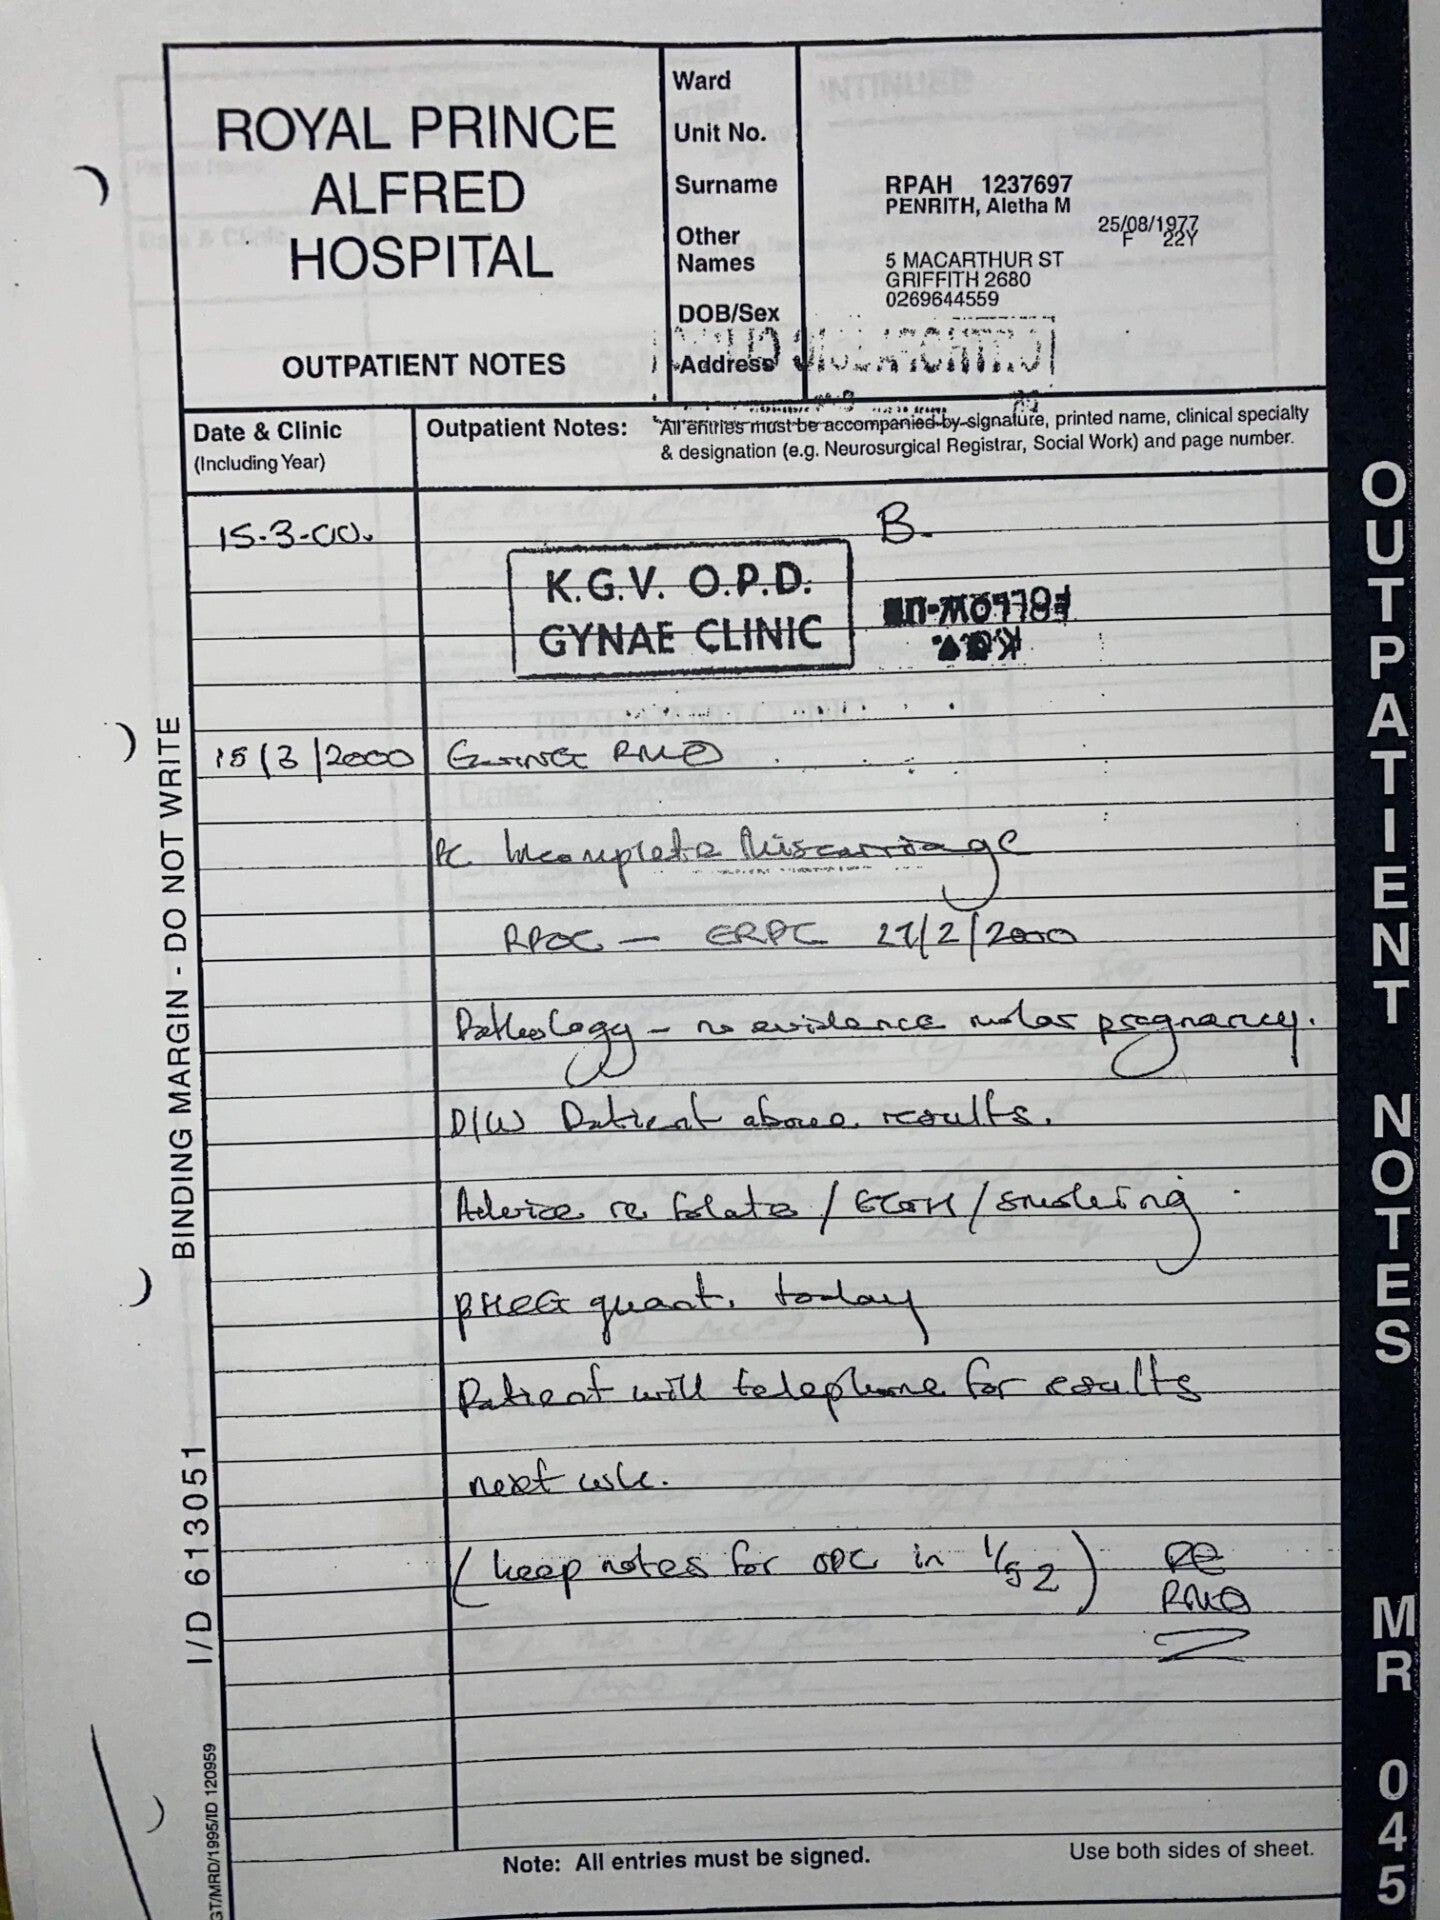 ROYAL PRINCE
ALFRED
HOSPITAL
OUTPATIENT NOTES
Ward
Unit No.
Surname
Other
Names
DOB/Sex
Address
RPAH 1237697
PENRITH, Aletha M
25/08/1977
F 22Y
5 MACARTHUR ST
GRIFFITH 2680
0269644559
Date & Clinic
(Including Year)
Outpatient Notes:
All entries must be accompanied by signature, printed name, clinical specialty
& designation (e.g. Neurosurgical Registrar, Social Work) and page number.
15-3-00.
B.
K.G.V. O.P.D.
GYNAE CLINIC
15/3/2000
RMO
PC Incomplete Miscarriage
RPOC — ERPC 27/2/2000
Pathology - no evidence molar pregnancy.
D/W Patient above results.
Advice re folate / ETOH / smoking
βHCG quant. today
Patient will telephone for results
next wk.
(keep notes for OPC in 1/52)
RMO
BINDING MARGIN - DO NOT WRITE
I/D 613051
GT/MRD/1995/ID 120959
Note: All entries must be signed.
Use both sides of sheet.
OUTPATIENT NOTES
MR 045